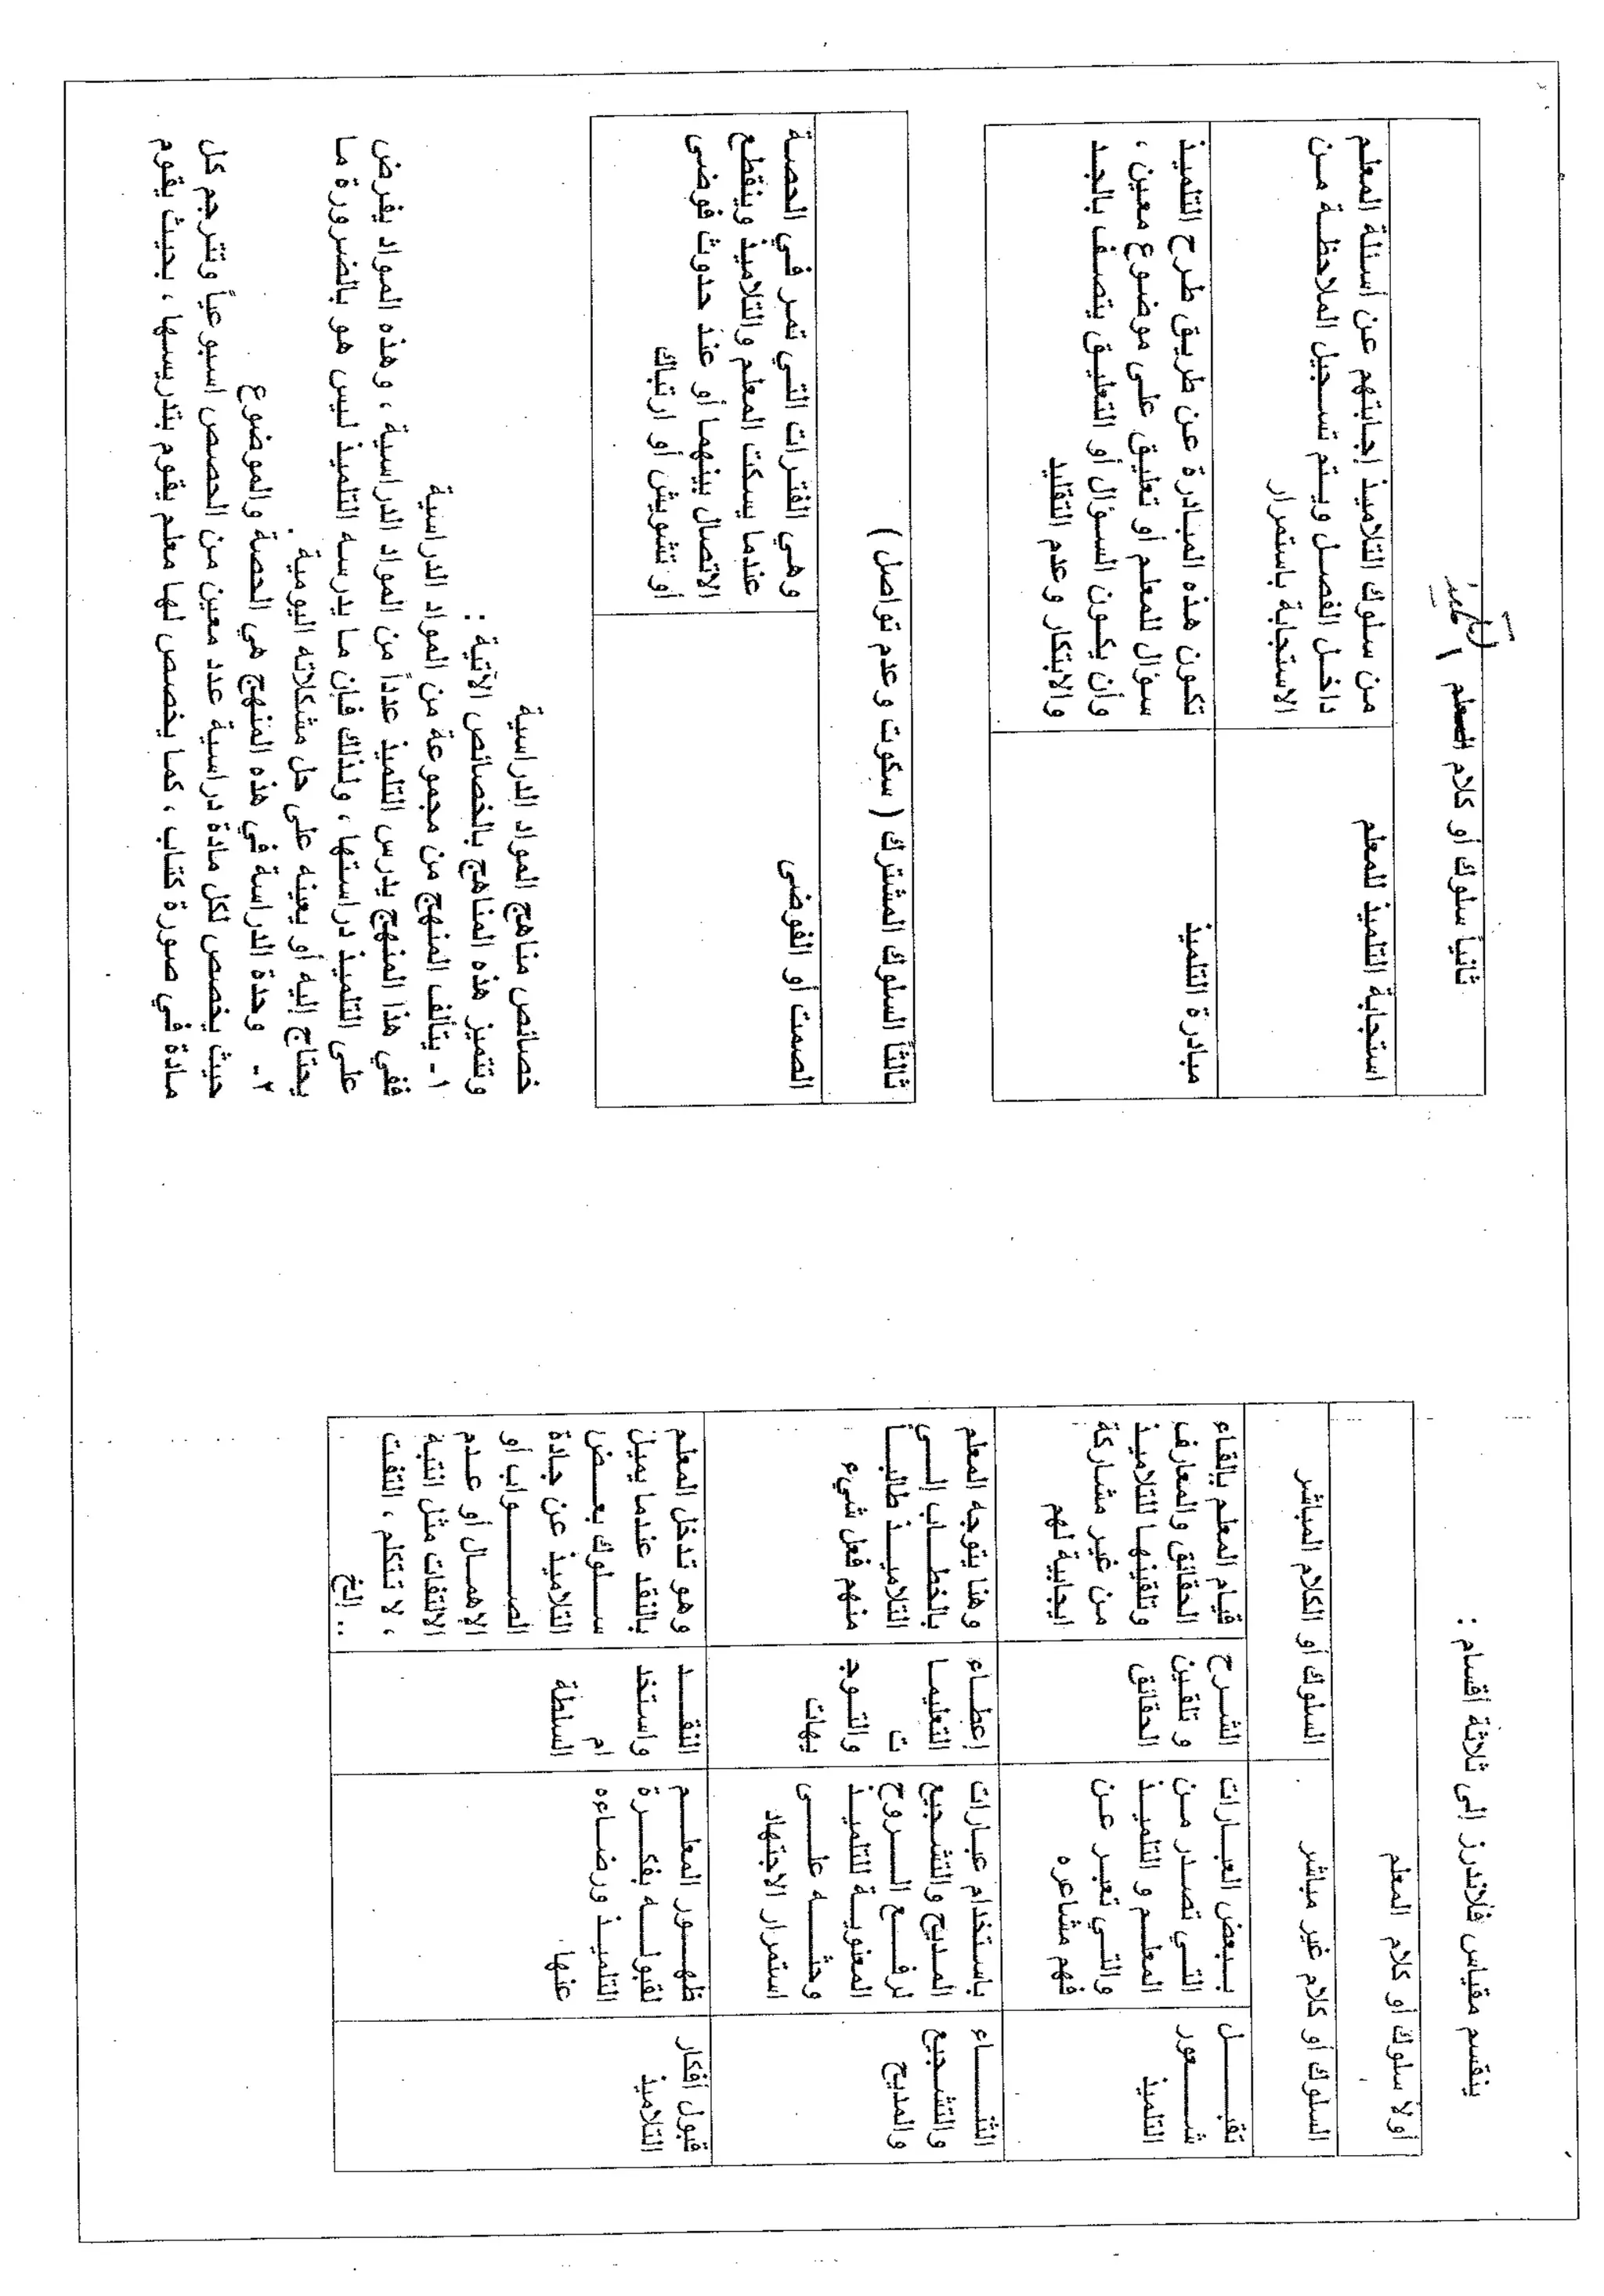 ينقسم مقياس فلاندرز إلى ثلاثة أقسام :
أولا سلوك أو كلام المعلم
السلوك أو كلام غير مباشر
السلوك أو الكلام المباشر
تقبـــــل
شـــــعور
التلميذ
بـبعض العبـارات
التـي تصـدر مـن
المعلـم و التلميـذ
والتـي تعبـر عـن
فهم مشاعره
الشـرح
و تلقـين
الحقائق
قيام المعلم بإلقاء
الحقائق والمعارف
وتلقينهـا للتلاميـذ
من غير مشاركة
ايجابية لهم
الثنـــــاء
والتشـجيع
والمديح
باستخدام عبارات
المـديح والتشـجيع
لرفـــع الـــروح
المعنويـــة للتلميـــذ
وحثـــــه علـــــى
استمرار الاجتهاد
إعطـاء
التعليمـا
ت
والتـوج
يهات
وهنا يتوجه المعلم
بالخطـــاب إلـــي
التلاميـــذ طالبـــا
منهم فعل شيء
قبول أفكار
التلاميذ
ظهـــور المعلـــم
لقبولـــه بفكـــرة
التلميـذ ورضـاءه
عنها.
النقـــد
واستخد
ام
السلطة
وهو تدخل المعلم
بالنقد عندما يميل
ســلوك بعـــض
التلاميذ عن جادة
الصـــــواب أو
الإهمـال أو عـدم
الالتفات مثل انتبة
، لا تتكلم ، التفت
.. إلخ
ثانياً سلوك أو كلام المعلم
استجابة التلميذ للمعلم
من سلوك التلاميذ إجابتهم عن أسئلة المعلم
داخـل الفصـل ويـتم تسـجيل الملاحظـة مـن
الاستجابة باستمرار
مبادرة التلميذ
تكـون هـذه المبـادرة عـن طريـق طـرح التلميـذ
سـؤال للمعلم أو تعليـق علـى موضـوع معـين ،
وأن يكـون السـؤال أو التعليـق يتصـف بالجـد
والابتكار وعدم التقليد
ثالثاً السلوك المشترك ( سكوت وعدم تواصل )
الصمت أو الفوضى
وهـي الفتـرات التـي تمـر فـي الحصـة
عندما يسكت المعلم والتلاميذ وينقطع
الاتصال بينهما أو عند حدوث فوضى
أو تشويش أو ارتباك
خصائص مناهج المواد الدراسية
وتتميز هذه المناهج بالخصائص الآتية :
١- يتألف المنهج من مجموعة من المواد الدراسية
ففي هذا المنهج يدرس التلميذ عدداً من المواد الدراسية ، وهذه المواد يفرض
على التلميذ دراستها ، ولذلك فإن ما يدرسه التلميذ ليس هو بالضرورة ما
يحتاج إليه أو يعينه على حل مشكلاته اليومية .
٢- وحدة الدراسة في هذه المنهج هي الحصة والموضوع
حيث يخصص لكل مادة دراسية عدد معين من الحصص اسبوعياً وتترجم كل
مادة في صورة كتاب ، كما يخصص لها معلم يقوم بتدريسها ، بحيث يقوم